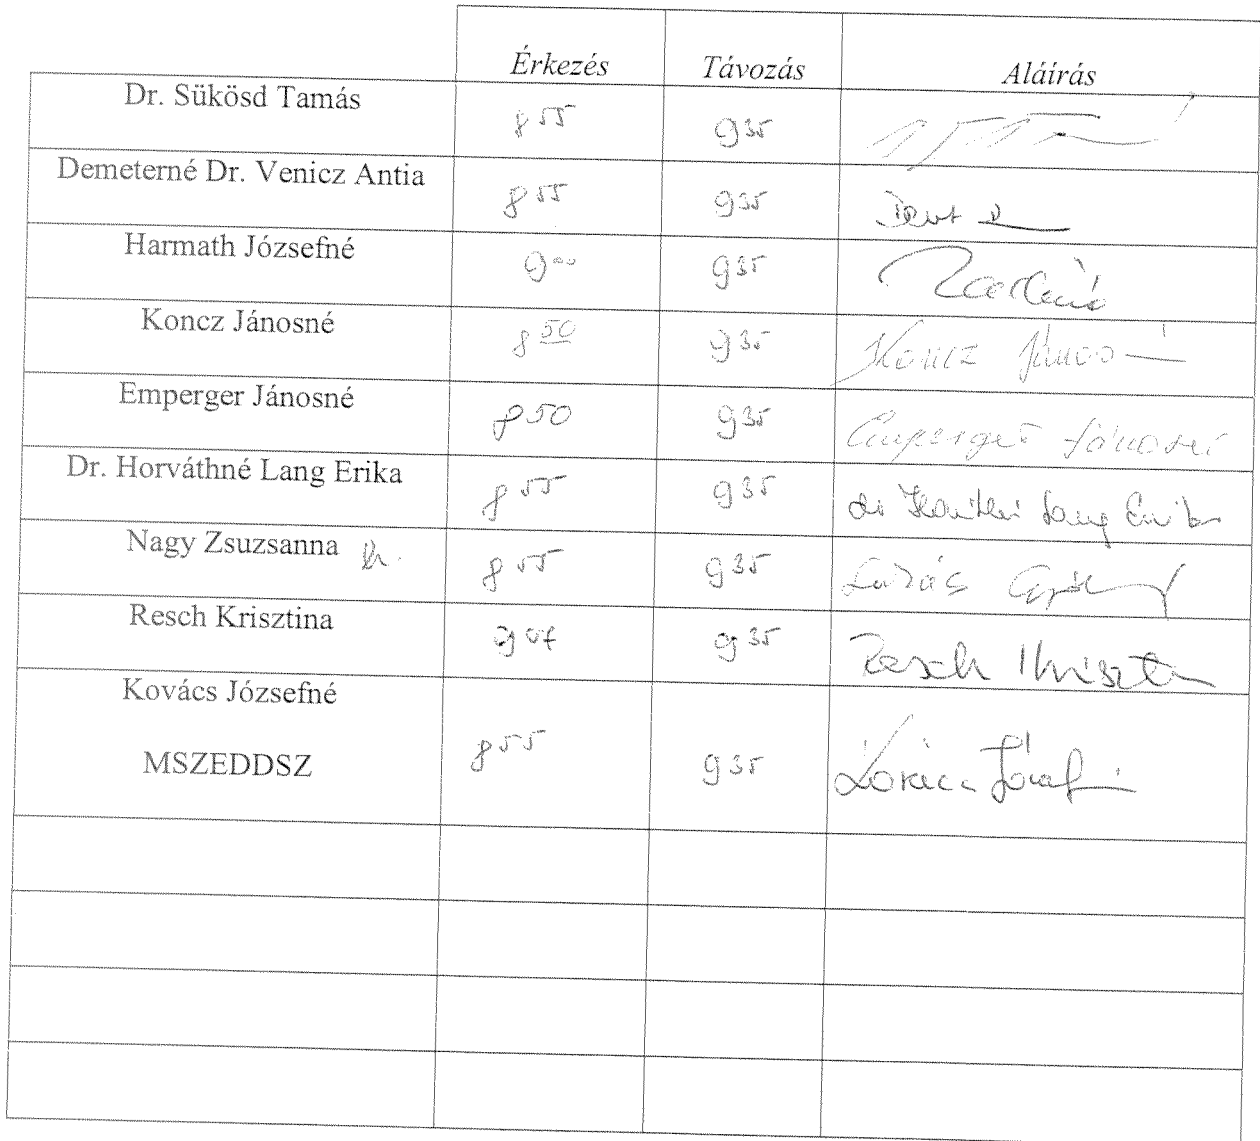 Érkezés Távozás Aláírás
Dr. Sükösd Tamás 8 55 9 35
Demeterné Dr. Venicz Antia 8 55 9 35
Harmath Józsefné 9 00 9 35
Koncz Jánosné 8 50 9 35 Koncz Jánosné
Emperger Jánosné 8 50 9 35 Emperger Jánosné
Dr. Horváthné Lang Erika 8 55 9 35 dr Horváthné Lang Erika
Nagy Zsuzsanna h. 8 55 9 35
Resch Krisztina 9 07 9 35 Resch Krisztina
Kovács Józsefné
MSZEDDSZ 8 55 9 35 Kovács Józsefné